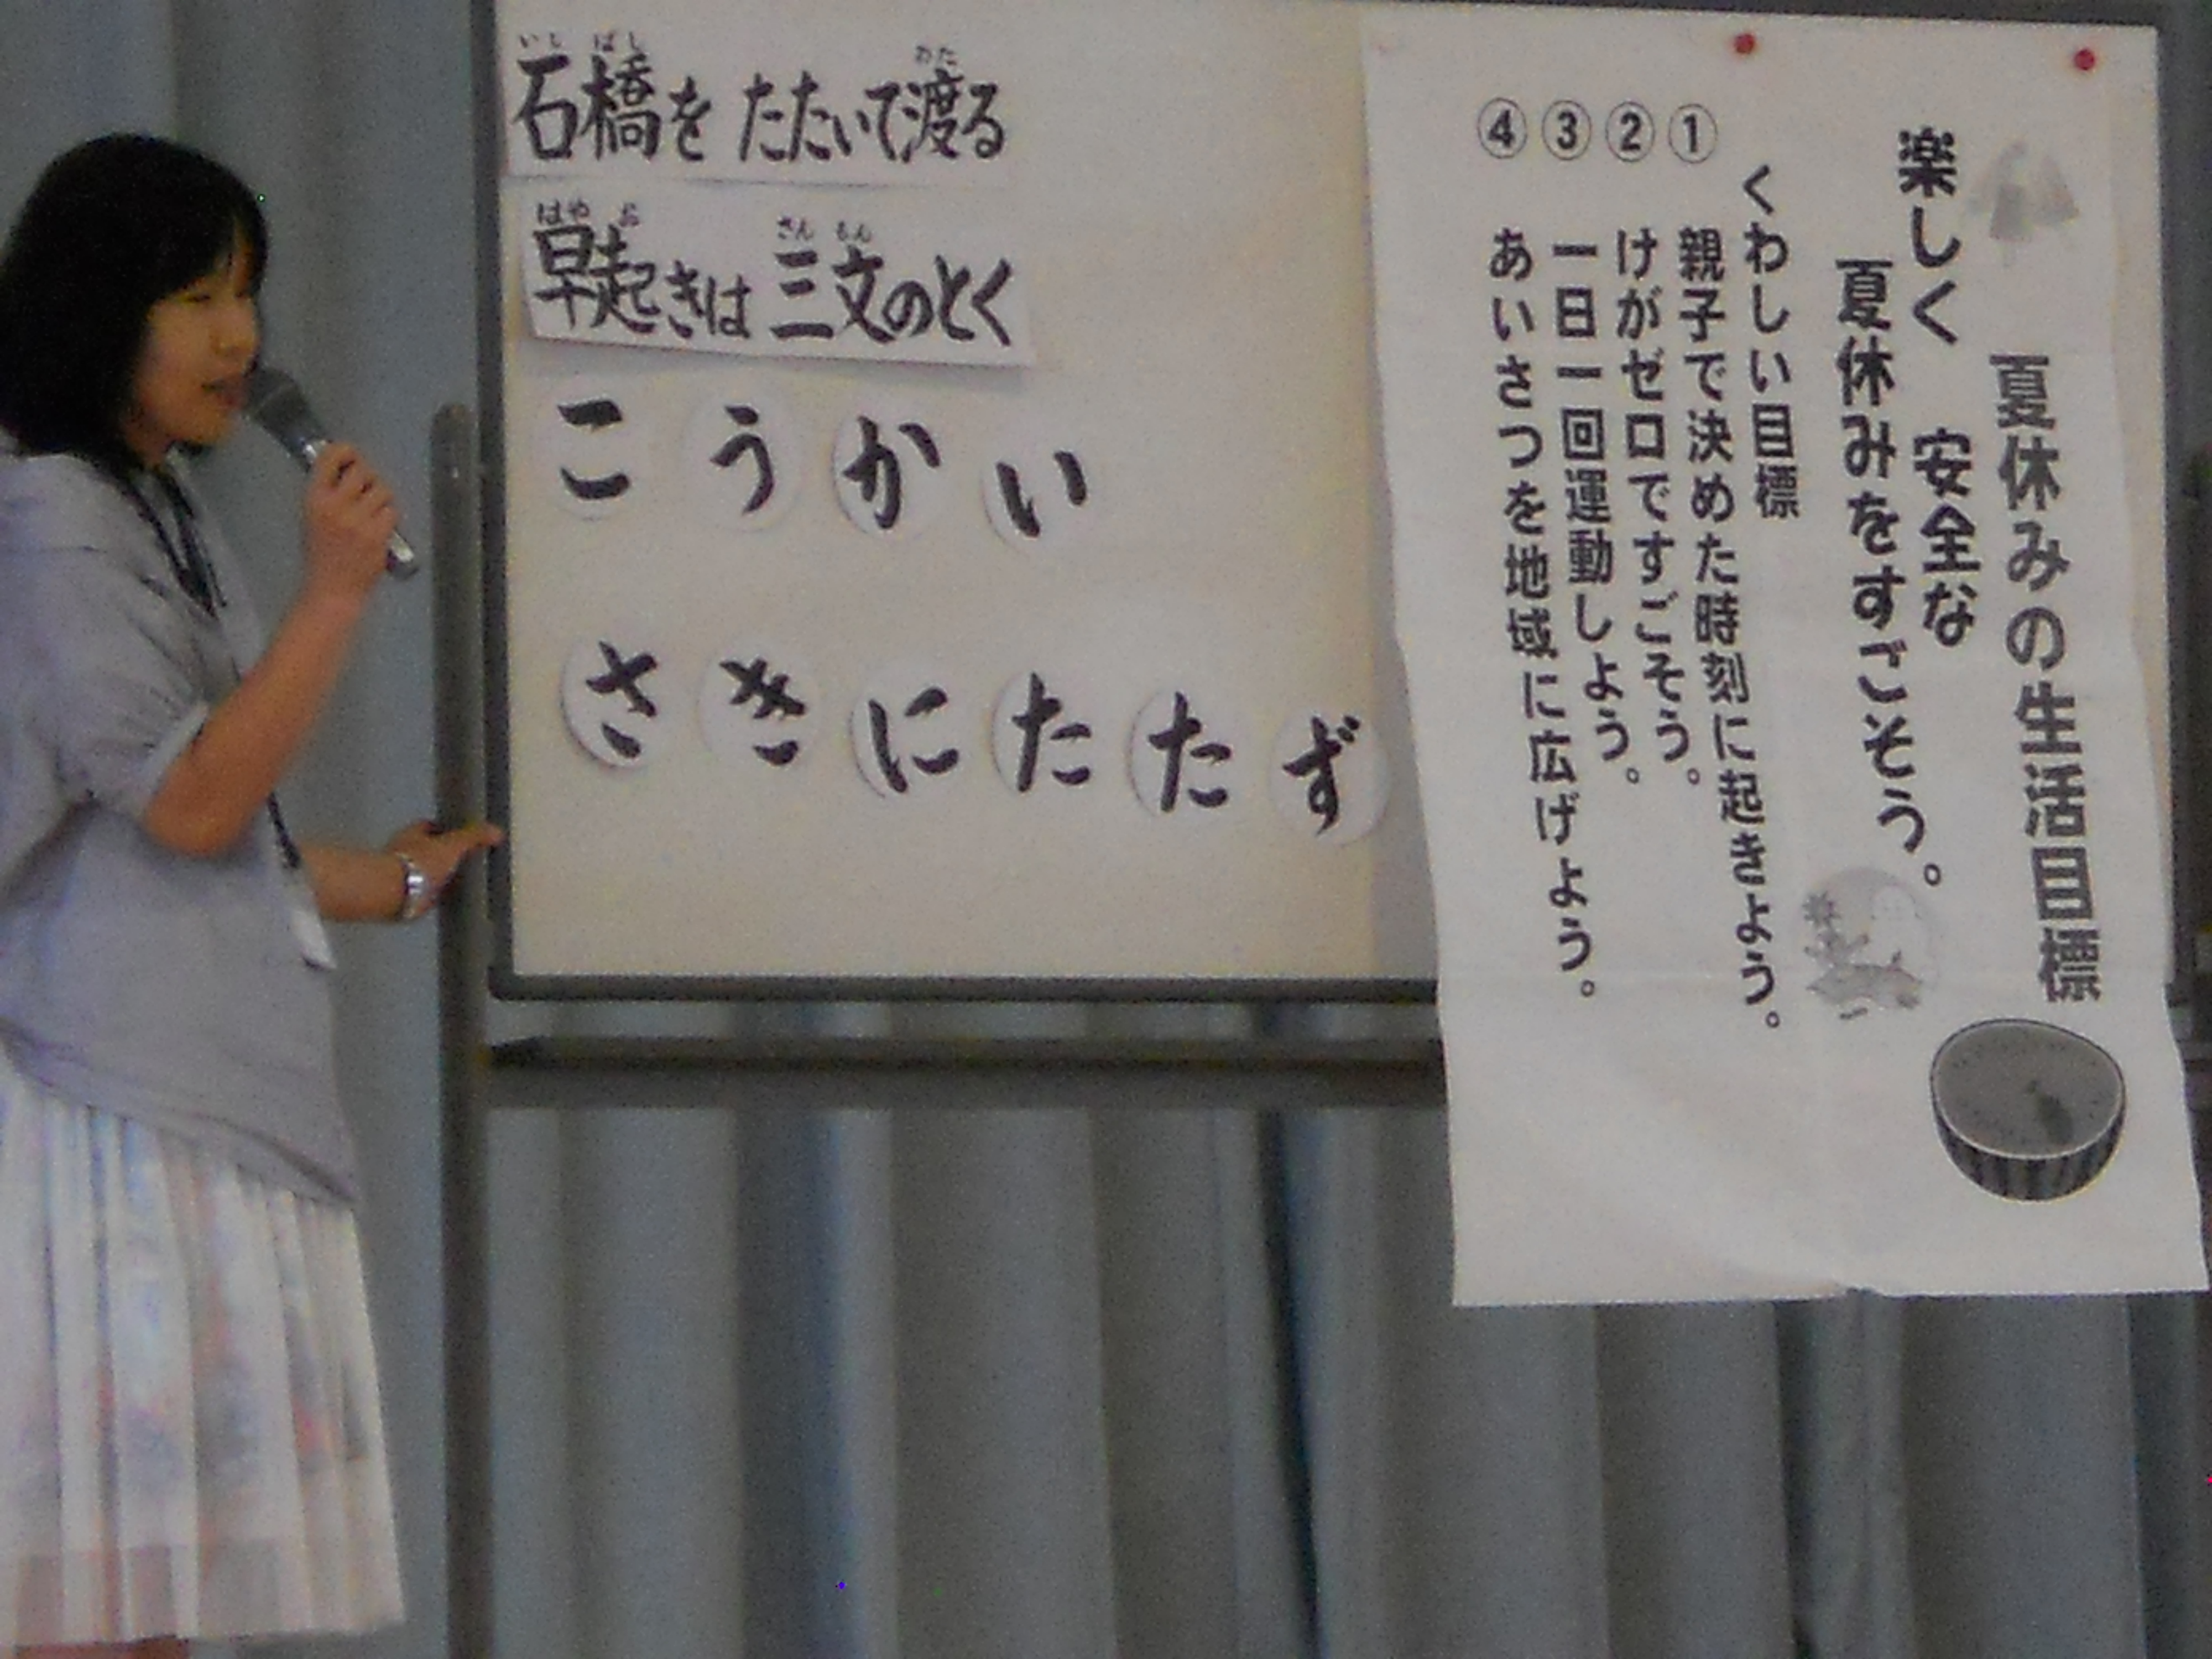 石橋をたたいて渡る
いし ばし わた
早起きは三文のとく
はや お さん もん
こうかい
さきにたたず
夏休みの生活目標
楽しく 安全な
夏休みをすごそう。
くわしい目標
① 親子で決めた時刻に起きよう。
② けがゼロですごそう。
③ 一日一回運動しよう。
④ あいさつを地域に広げよう。